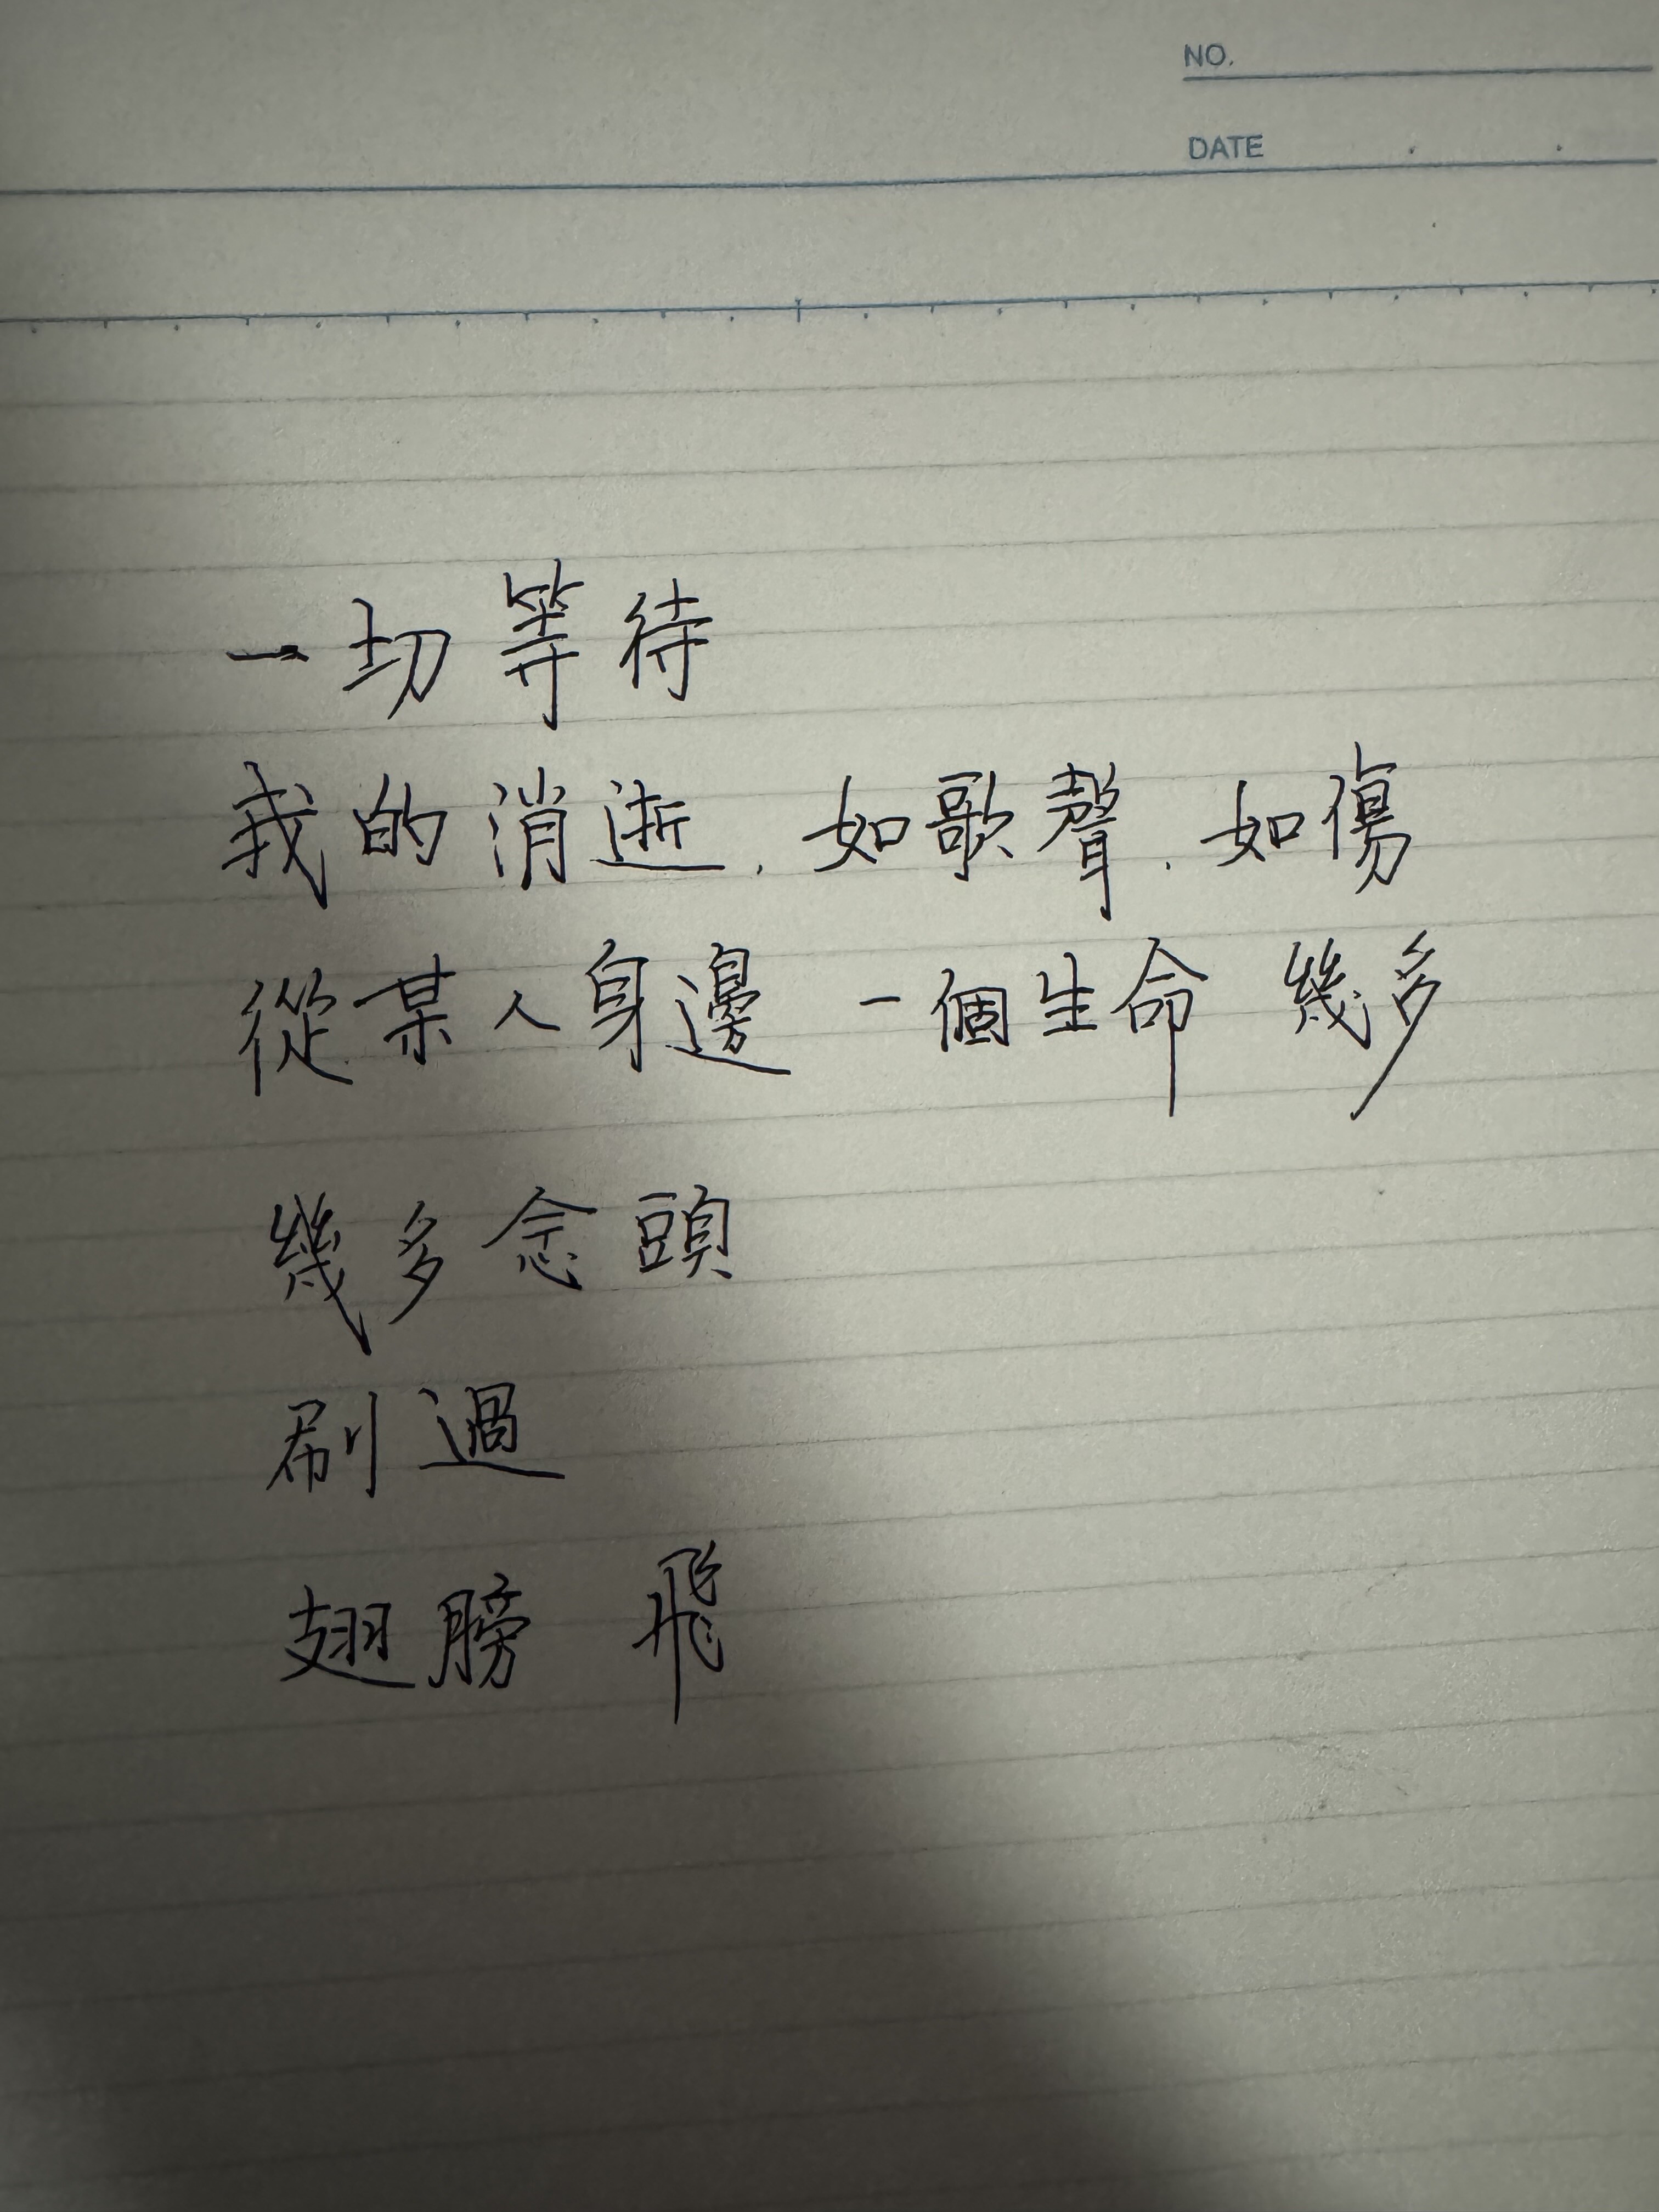 NO.
DATE
一切等待
我的消逝.如歌聲.如傷
從某人身邊 一個生命 幾多
幾多念頭
刷過
翅膀 飛